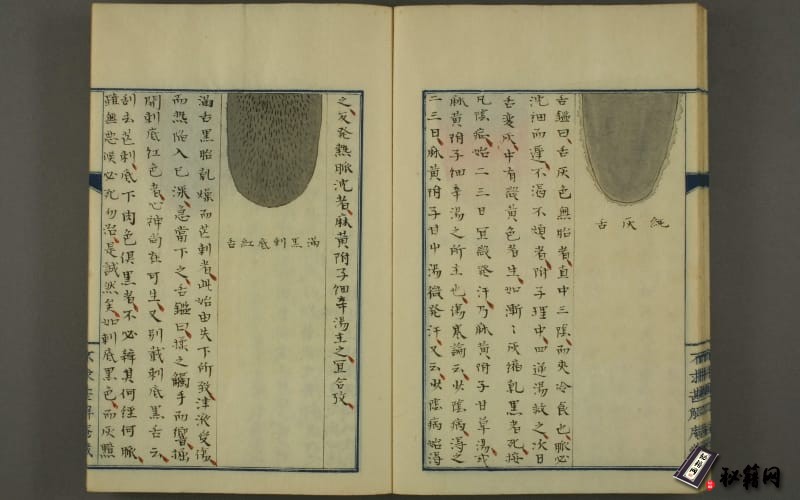 純灰舌
舌鑑曰舌灰色無胎者直中三陰而夾冷食也脈必
沈細而遲不渴不煩者附子理中四逆湯救之次日
舌變灰中有微黃色者生如漸々灰縮乾黑者死按
凡陰病始二三日宜微發汗乃麻黃附子甘草湯或
麻黃附子細辛湯之所主也傷寒論云少陰病得之
二三日麻黃附子甘中湯微發汗又云少陰病始得
之反発熱脈沈者麻黃附子細辛湯主之宜合攷
滿黑刺底紅舌
滿舌黑胎乾燥而芒刺者此始由失下所致津液受傷
而熱陷入已深急當下之舌鑑曰揉之觸手而響掘
開刺底紅色者心神尚在可生又別載刺底黑舌云
刮去芒刺底下肉色俱黑者不必辨其何經何脈
雖無惡候必死勿治是誠然矣如刺底黑色而灰黯
秘籍网